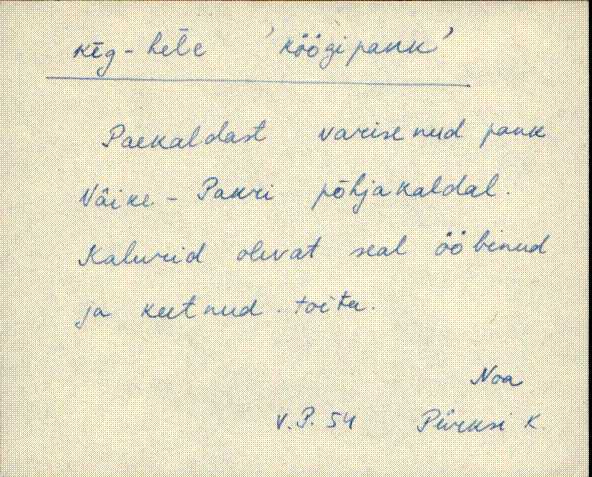 kēg-hēłe 'köögipank'
Paekaldast varisenud pank
Väike-Pakri põhjakaldal.
Kalurid olevat seal ööbinud
ja keetnud toitu.
Noa
V.P. 54 Pürksi k.